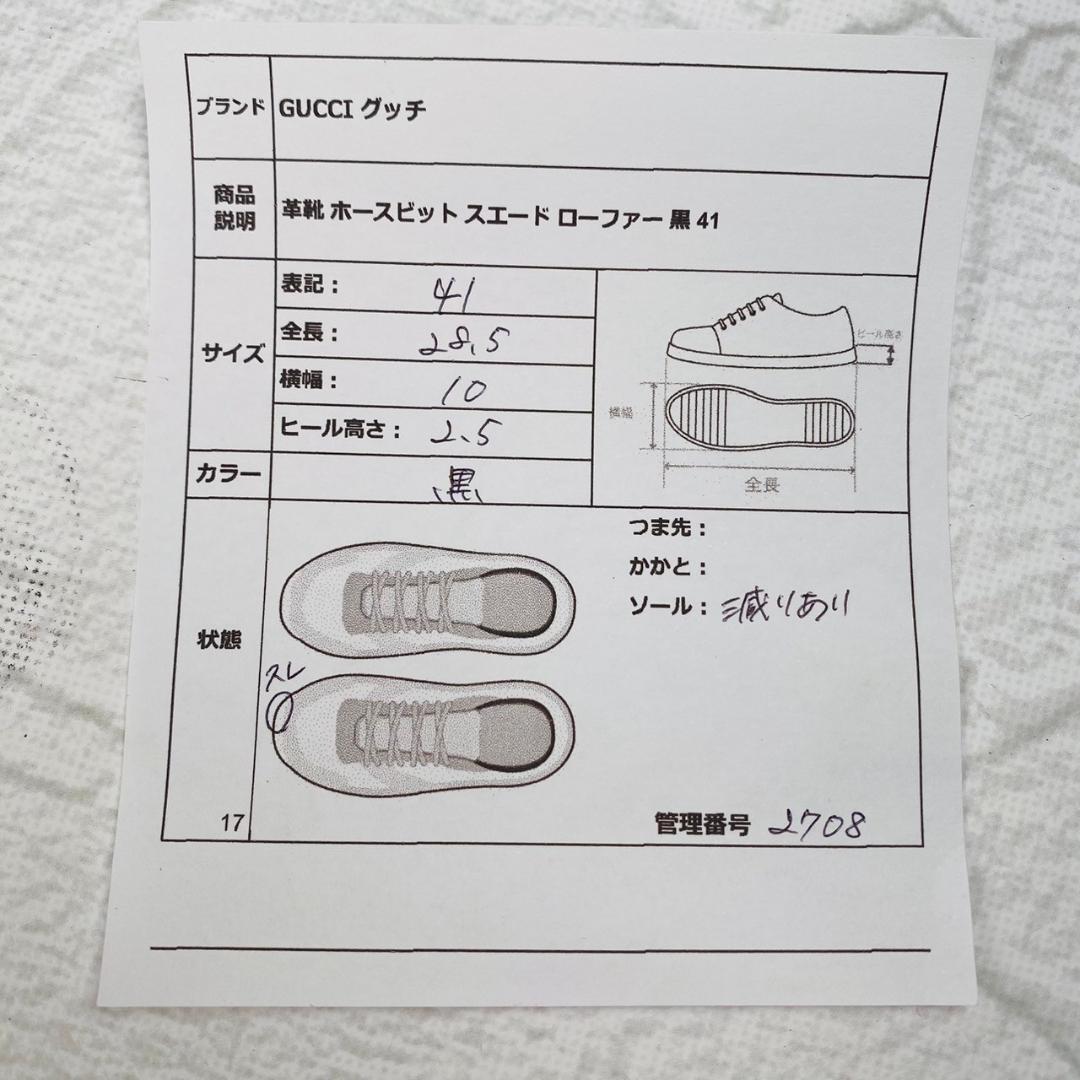 ブランド GUCCI グッチ
商品
説明
革靴 ホースビット スエード ローファー 黒 41
サイズ
表記: 41
全長: 28.5
横幅: 10
ヒール高さ: 2.5
ヒール高さ
横幅
全長
カラー 黒
状態
つま先:
かかと:
ソール: 減りあり
スレ
17
管理番号 2708